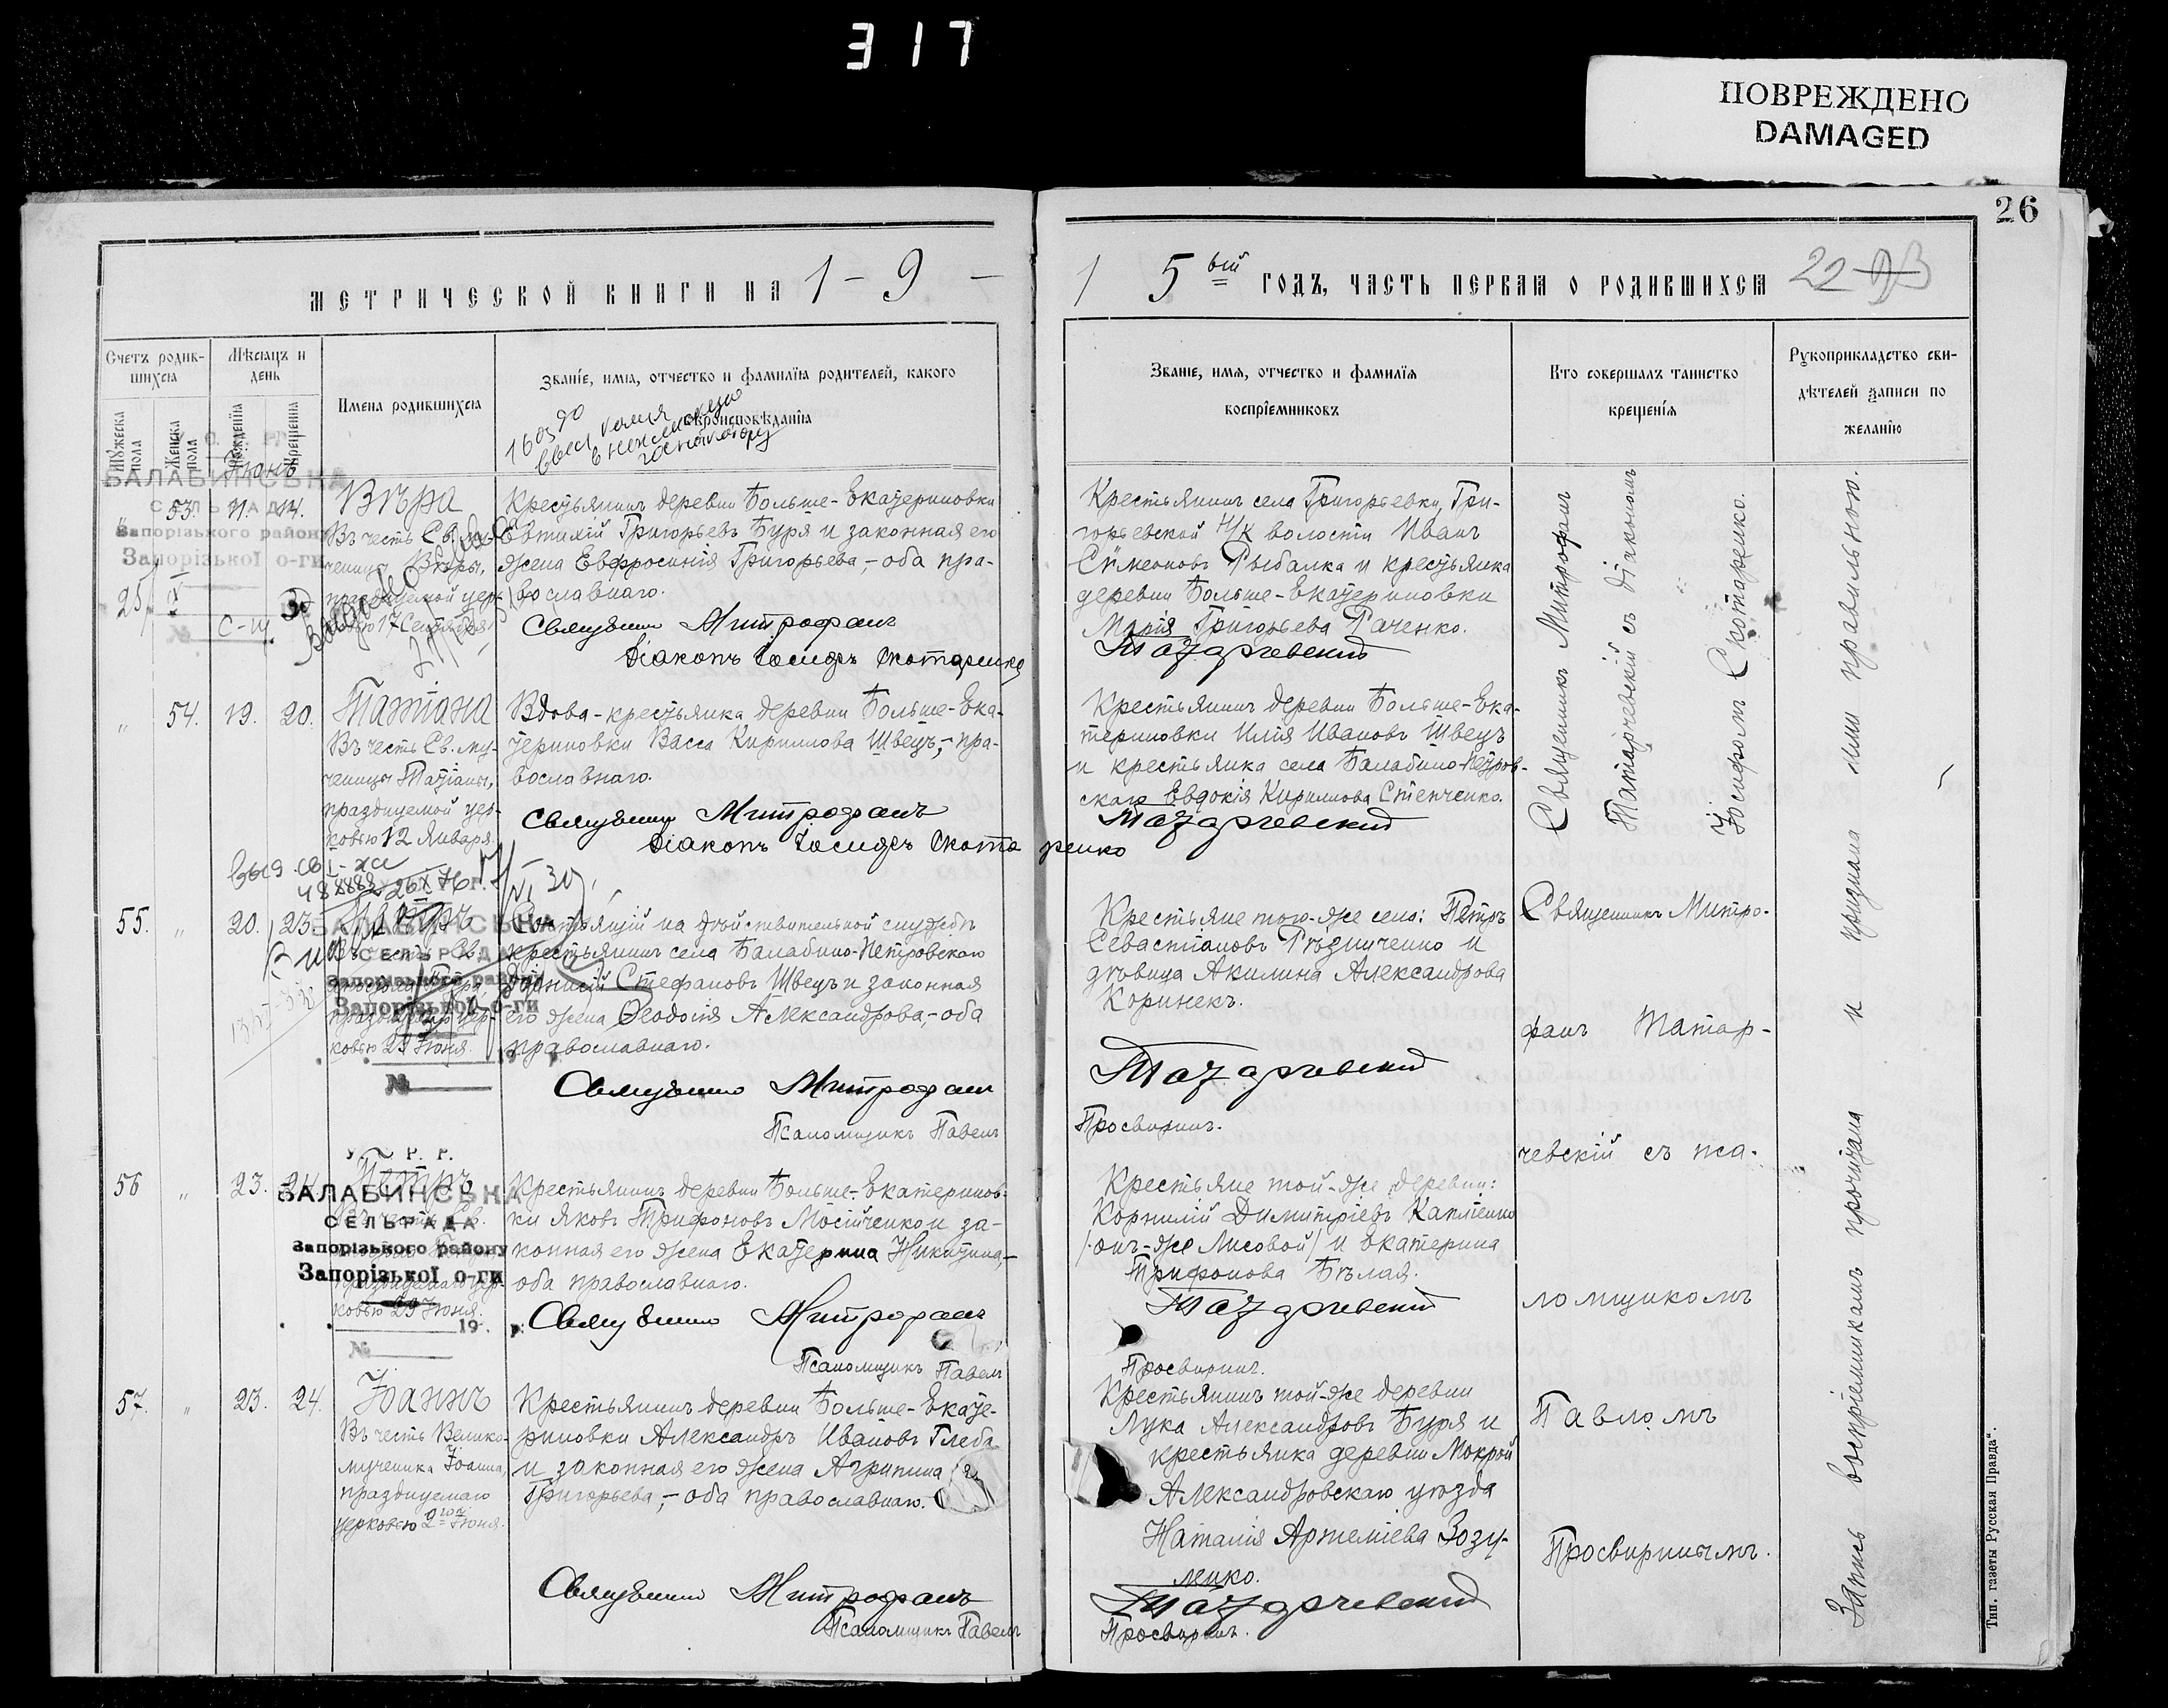 317
ПОВРЕЖДЕНО
DAMAGED
26
МЕТРИЧЕСКОЙ КНИГИ НА 1 - 9 -
1 5 ый ГОДЪ, ЧАСТЬ ПЕРВАЯ О РОДИВШИХСЯ
22
Счетъ родив-
шихся
Мѣсяцъ и
день
Мужеска пола
Женска пола
Рожденія
Крещенія
Имена родившихся
Званіе, имя, отчество и фамилія родителей, какого
вѣроисповѣданія
Званіе, имя, отчество и фамилія
воспріемниковъ
Кто совершалъ таинство
крещенія
Рукоприкладство сви-
дѣтелей записи по
желанію
Іюнь
БАЛАБИНСЬКА
Запорізького району
Запорізької о-ги
„ 53. 11. 14.
Вѣра
Въ честь Св. му-
ченицы Вѣры,
празднуемой цер-
ковью 17 Сентября
Крестьянинъ деревни Больше-Екатериновки
Евтихій Григорьевъ Буря и законная его
жена Евфросинія Григорьева,- оба пра-
вославнаго.
Священникъ Митрофанъ
Діаконъ Іосифъ Скотаренко
Крестьянинъ села Григорьевки, Гри-
горьевской н/к волости Иванъ
Сѵмеоновъ Рыбалка и крестьянка
деревни Больше-Екатериновки
Марія Григорьева Раченко.
Татарчевскій
Священникъ Митрофанъ
Татарчевскій съ діакономъ
Іосифомъ Скотаренко.
„ 54. 19. 20.
Татіана
Въ честь Св. му-
ченицы Татіаны,
празднуемой цер-
ковью 12 Января.
Вдова-крестьянка деревни Больше-Ека-
териновки Васса Кириллова Швецъ,- пра-
вославнаго.
Священникъ Митрофанъ
Діаконъ Іосифъ Скотаренко
Крестьянинъ деревни Больше-Ека-
териновки Илія Ивановъ Швецъ
и крестьянка села Балабино-Петров-
скаго Евдокія Кириллова Степченко.
Татарчевскій
55. „ 20. 23.
Петръ
БАЛАБИНСЬКА
СЕЛЬРАДА
Запорізького району
Запорізької о-ги
ковью 29 Іюня.
№
Состоящій на дѣйствительной службѣ
крестьянинъ села Балабино-Петровскаго
Діонисій Стефановъ Швецъ и законная
его жена Ѳеодосія Александрова,- оба
православнаго.
Священникъ Митрофанъ
Псаломщикъ Павелъ
Крестьяне того-же села: Петръ
Севастіановъ Рѣзниченко и
дѣвица Акилина Александрова
Коринекъ.
Татарчевскій
Просвиринъ.
Священникъ Митро-
фанъ Татар-
чевскій съ пса-
ломщикомъ
Павломъ
Просвиринымъ.
56 „ 23. 24.
Петръ
У. С. Р. Р.
БАЛАБИНСЬКА
СЕЛЬРАДА
Запорізького району
Запорізької о-ги
ковью 29 Іюня.
19 . р.
№
Крестьянинъ деревни Больше-Екатеринов-
ки Яковъ Трифоновъ Мосійченко и за-
конная его жена Екатерина Никитина,-
оба православнаго.
Священникъ Митрофанъ
Псаломщикъ Павелъ
Крестьяне той-же деревни:
Корнилій Димитріевъ Каплиенко
/онъ-же Лисовой/ и Екатерина
Трифонова Бѣлая.
Татарчевскій
Просвиринъ.
57. „ 23. 24.
Іоаннъ
Въ честь Велико-
мученика Іоанна,
празднуемаго
церковью 2го Іюня.
Крестьянинъ деревни Больше-Екате-
риновки Александръ Ивановъ Глеба
и законная его жена Агрипина
Григорьева,- оба православнаго.
Священникъ Митрофанъ
Псаломщикъ Павелъ
Крестьянинъ той-же деревни
Лука Александровъ Буря и
крестьянка деревни Мокрой
Александровскаго уѣзда
Наталія Артеміева Зозу-
ленко.
Татарчевскій
Просвиринъ.
Запись воспріемникамъ прочитана и признана ими правильною.
Тип. газеты „Русская Правда“.